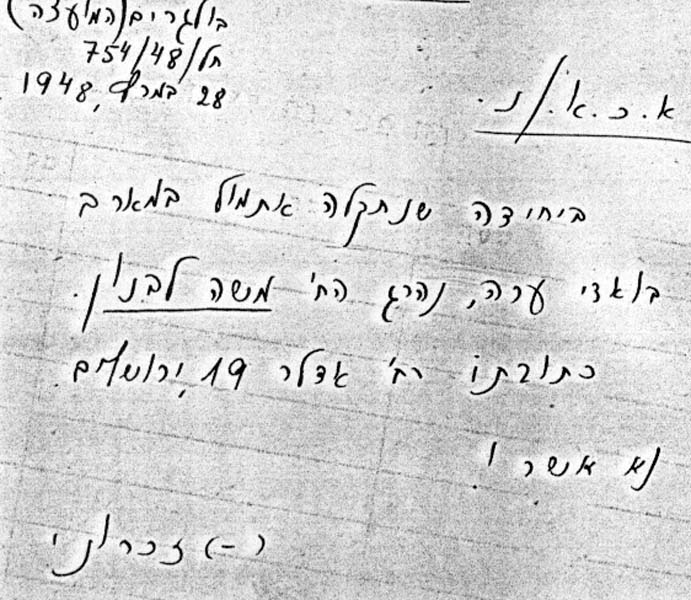 בולגרים (המועצה)
חל/754/48
28 במרץ, 1948
א.כ.א./נ.
ביחידה שנתקלה אתמול במארב
בואדי ערה, נהרג הח' משה לבנון.
כתובתו רח' אדלר 19, ירושלים.
נא אשר !
(-) זכרוני